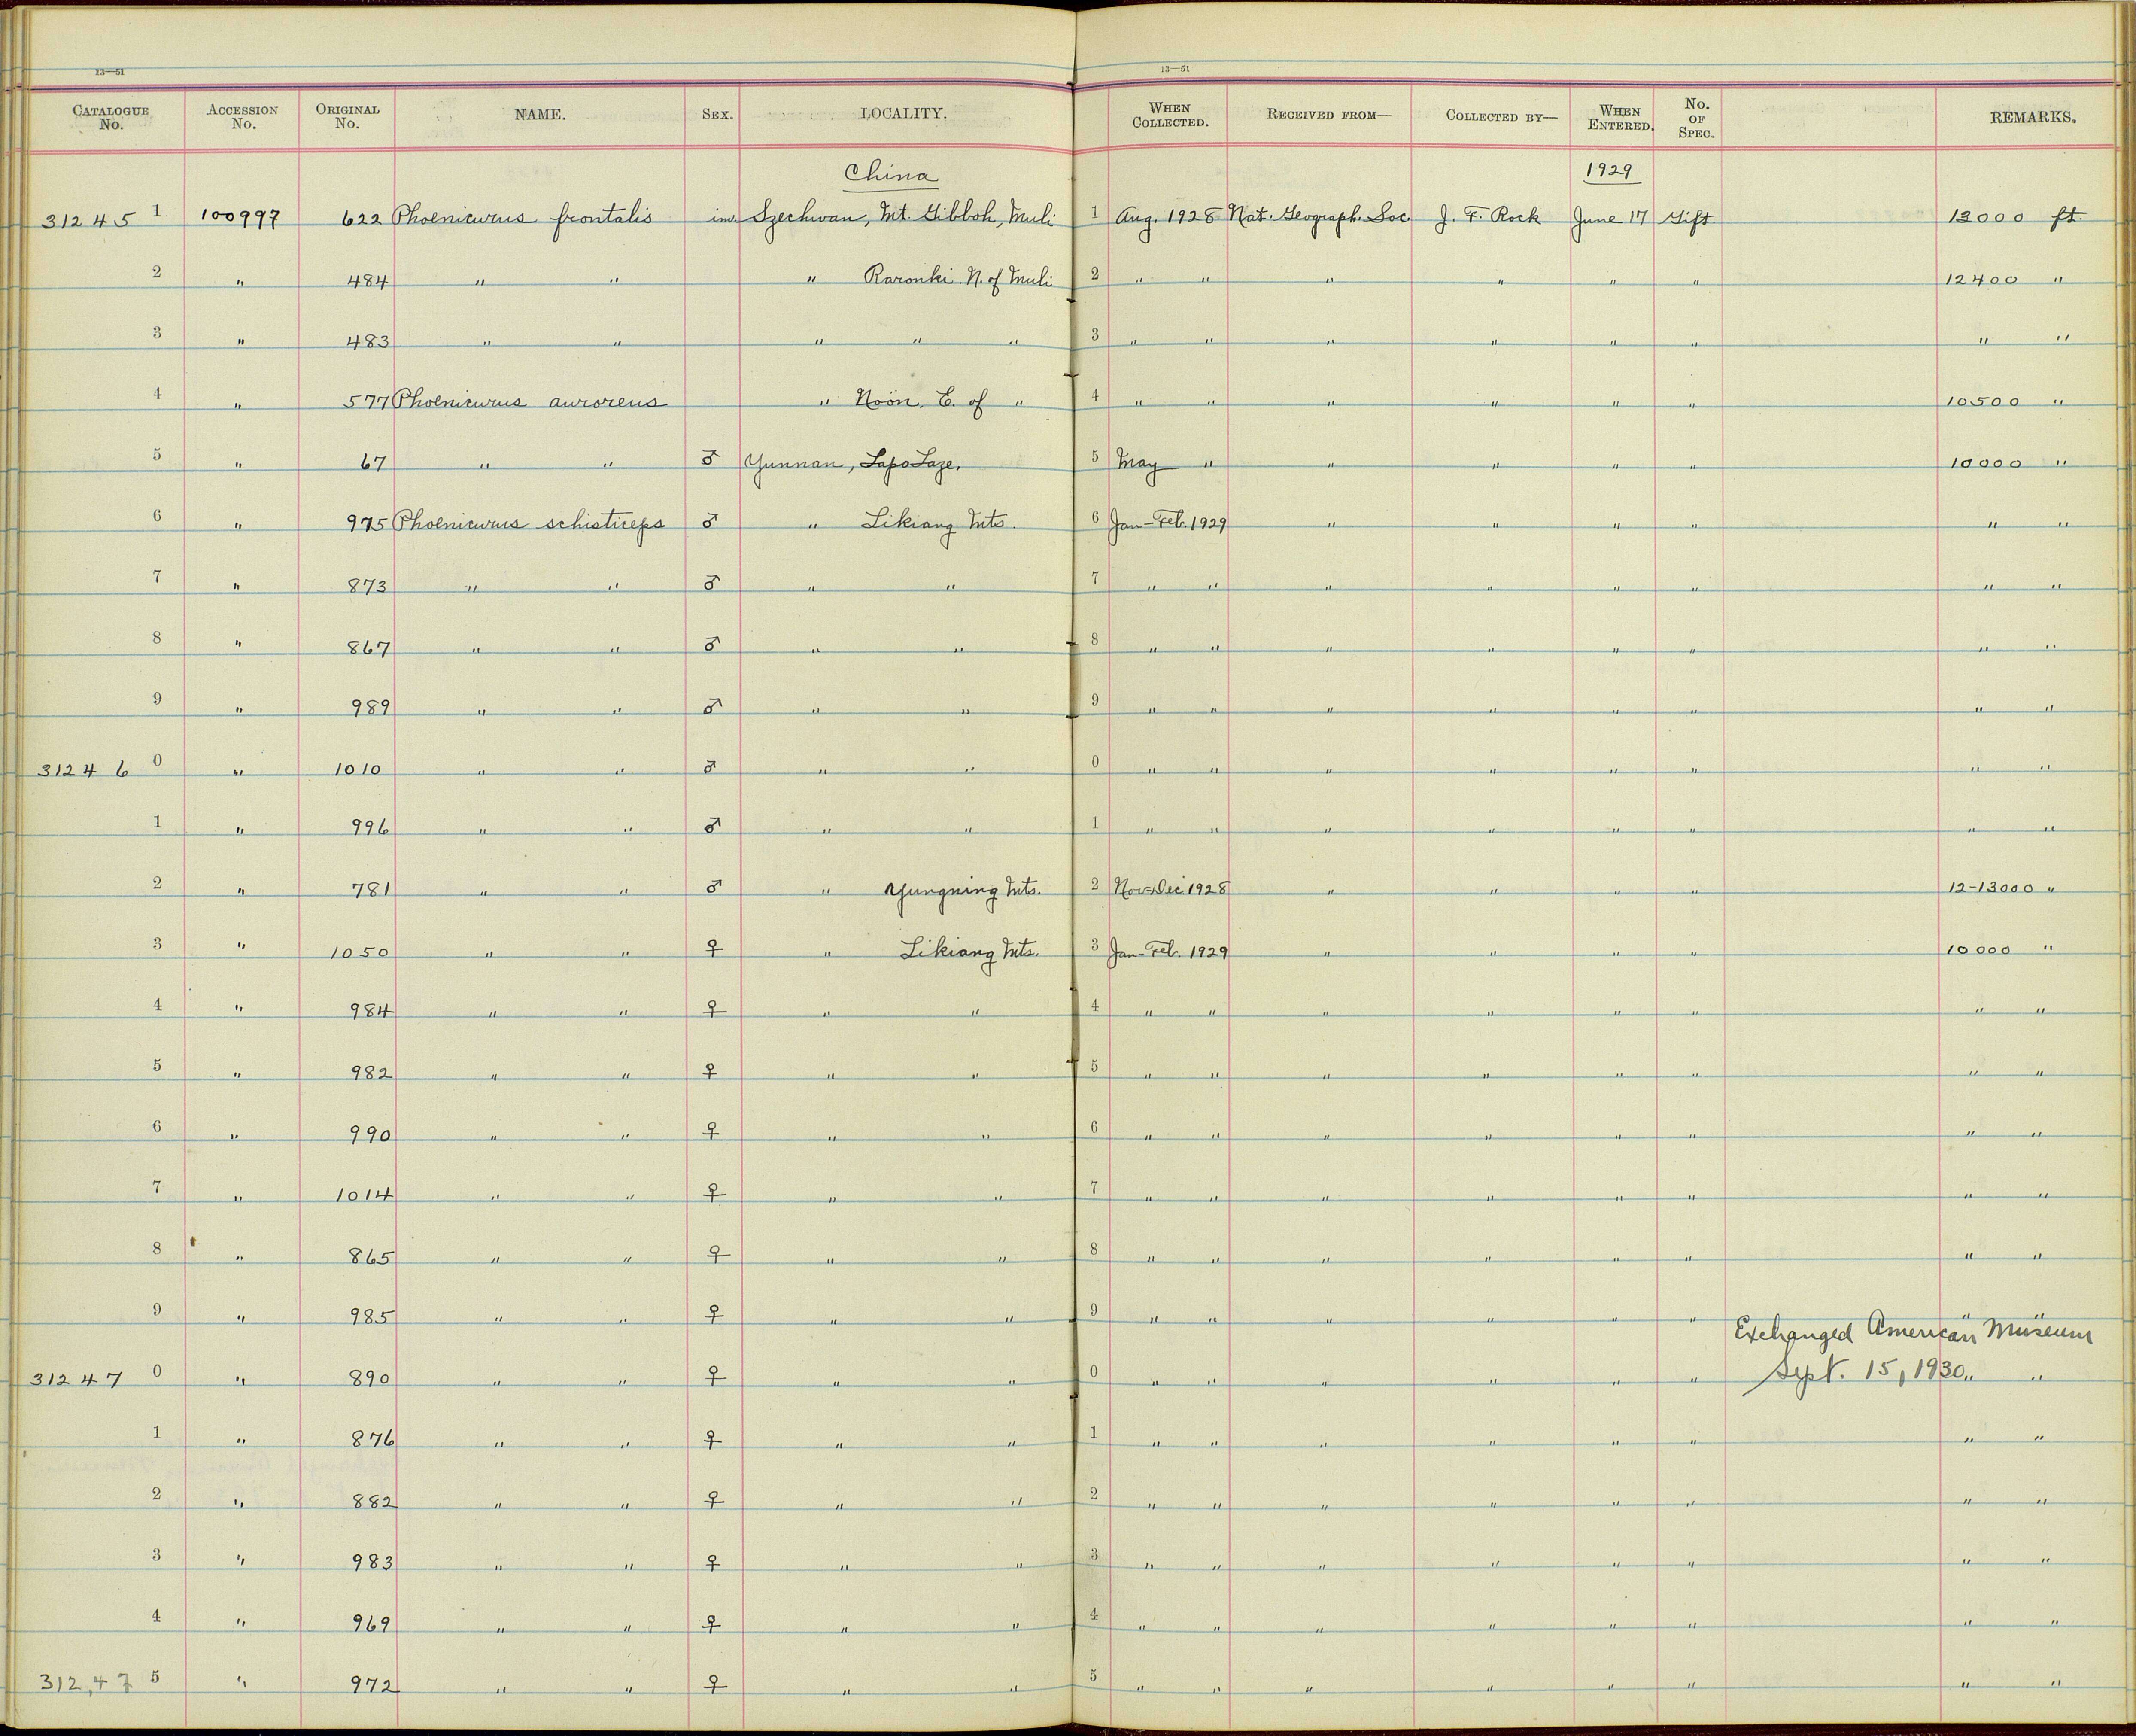 13—51 13—51
CATALOGUE No. ACCESSION No. ORIGINAL No. NAME. SEX. LOCALITY. WHEN COLLECTED. RECEIVED FROM— COLLECTED BY— WHEN ENTERED. No. OF SPEC. REMARKS.
China 1929
31245 1 100997 622 Phoenicurus frontalis im. Szechwan, Mt. Gibboh, Muli 1 Aug. 1928 Nat. Geograph. Soc. J. F. Rock June 17 Gift 13000 ft.
2 " 484 " " " Raronki N. of Muli 2 " " " " " " 12400 "
3 " 483 " " " " " 3 " " " " " " " "
4 " 577 Phoenicurus auroreus " Noön, E. of " 4 " " " " " " 10500 "
5 " 67 " " ♂ Yunnan, Lapo Laze. 5 May " " " " " 10000 "
6 " 975 Phoenicurus schisticeps ♂ " Likiang Mts. 6 Jan-Feb. 1929 " " " " " "
7 " 873 " " ♂ " " 7 " " " " " " " "
8 " 867 " " ♂ " " 8 " " " " " " " "
9 " 989 " " ♂ " " 9 " " " " " " " "
31246 0 " 1010 " " ♂ " " 0 " " " " " " " "
1 " 996 " " ♂ " " 1 " " " " " " " "
2 " 781 " " ♂ " Yungning Mts. 2 Nov-Dec. 1928 " " " " 12-13000 "
3 " 1050 " " ♀ " Likiang Mts. 3 Jan-Feb. 1929 " " " " 10000 "
4 " 984 " " ♀ " " 4 " " " " " " " "
5 " 982 " " ♀ " " 5 " " " " " " " "
6 " 990 " " ♀ " " 6 " " " " " " " "
7 " 1014 " " ♀ " " 7 " " " " " " " "
8 " 865 " " ♀ " " 8 " " " " " " " "
9 " 985 " " ♀ " " 9 " " " " " " " "
Exchanged American Museum
31247 0 " 890 " " ♀ " " 0 " " " " " " Sept. 15, 1930 " "
1 " 876 " " ♀ " " 1 " " " " " " " "
2 " 882 " " ♀ " " 2 " " " " " " " "
3 " 983 " " ♀ " " 3 " " " " " " " "
4 " 969 " " ♀ " " 4 " " " " " " " "
312,47 5 " 972 " " ♀ " " 5 " " " " " " " "